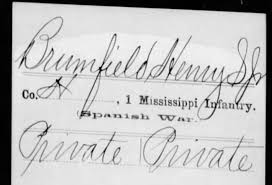 Brumfield, Henry S, Jr
Co. H, 1 Mississippi Infantry.
(Spanish War.)
Private Private